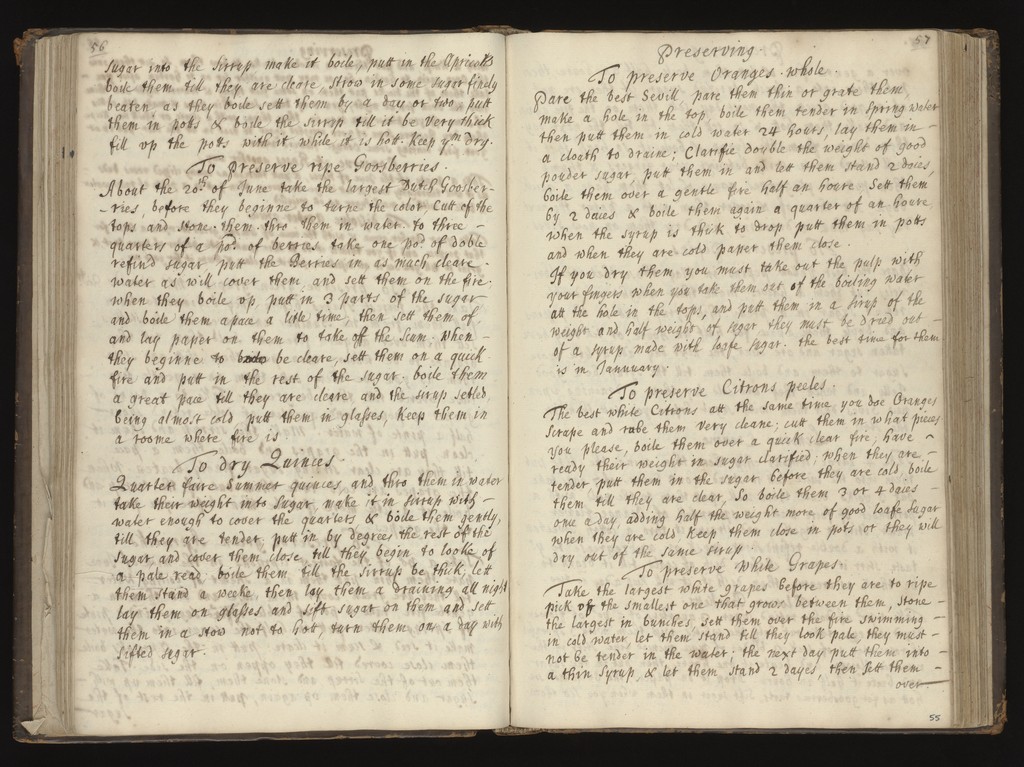 56
sugar into the sirrup make it boile, putt in the Apricotts
boile them till they are cleare, strow in some sugar finely
beaten as they boile sett them by a daie or two, putt
them in potts & boile the sirrup till it be very thick
fill vp the potts with it while it is hott. Keep ym dry.
To preserve ripe Goosberries.
About the 20th of June take the largest Dutch Goosber-
-ries, before they beginne to turne the color Cutt of the
tops and stone them thro them in water. to three -
quarters of a po: of berries take one po: of doble
refind sugar, putt the Berries in as much cleare
water as will cover them, and sett them on the fire.
when they boile vp, putt in 3 parts of the sugar
and boile them apace a litle time, then sett them of
and lay paper on them to take off the scum, when -
they beginne to be cleare, sett them on a quick
fire and putt in the rest of the sugar. boile them
a great pace till they are cleare, and the sirup setled.
being almost cold, putt them in glasses, keep them in
a roome where fire is
To dry Quinces.
Quarter faire Summer quinces, and thro them in water
take their weight into sugar, make it in sirrup with -
water enough to cover the quarters & boile them gently,
till they are tender, putt in by degrees the rest of the
sugar, and cover them close, till they begin to looke of
a pale read, boile them till the sirrup be thick, lett
them stand a weeke, then lay them a draining all night
lay them on glasses and sift sugar on them and sett
them in a stow not to hott, turn them once a day with
sifted segar.
57
Preserving.
To preserve Oranges whole.
Pare the best Sevill, pare them thin or grate them,
make a hole in the top, boile them tender in spring water
then putt them in cold water 24 hours, lay them in -
a cloath to draine; Clarifie double the weight of good
pouder sugar, putt them in and lett them stand 2 daies,
boile them over a gentle fire half an houre, sett them
by 2 daies & boile them again a quarter of an houre
when the syrup is thick to drop putt them in potts
and when they are cold paper them close.
If you dry them you must take out the pulp with
your fingers when you take them out of the boiling water
att the hole in the tops, and putt them in a sirup of the
weight and half weight of sugar they must be dried out -
of a syrup made with loafe sugar. the best time for them
is in Jannuary.
To preserve Citrons peeles.
The best white Citrons att the same time you doe Oranges
scrape and rube them very cleane; cutt them in what pieces
you please, boile them over a quick clear fire, have -
ready their weight in sugar clarified; when they are -
tender putt them in the sugar before they are cold, boile
them till they are clear, so boile them 3 or 4 daies
once a day adding half the weight more of good loafe sugar
when they are cold keep them close in pots or they will
dry out of the same sirup.
To preserve while Grapes.
Take the largest white grapes before they are to ripe
pick off the smallest one that grows between them, stone -
the largest in bunches, sett them over the fire swimming -
in cold water, let them stand till they look pale, they must -
not be tender in the water; the next day putt them into -
a thin syrup, & let them stand 2 dayes, then sett them -
over
55